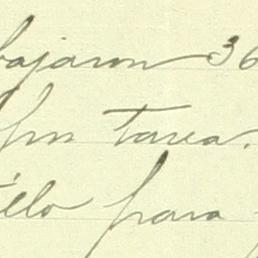 bajaron 36
por tarea.
télo para